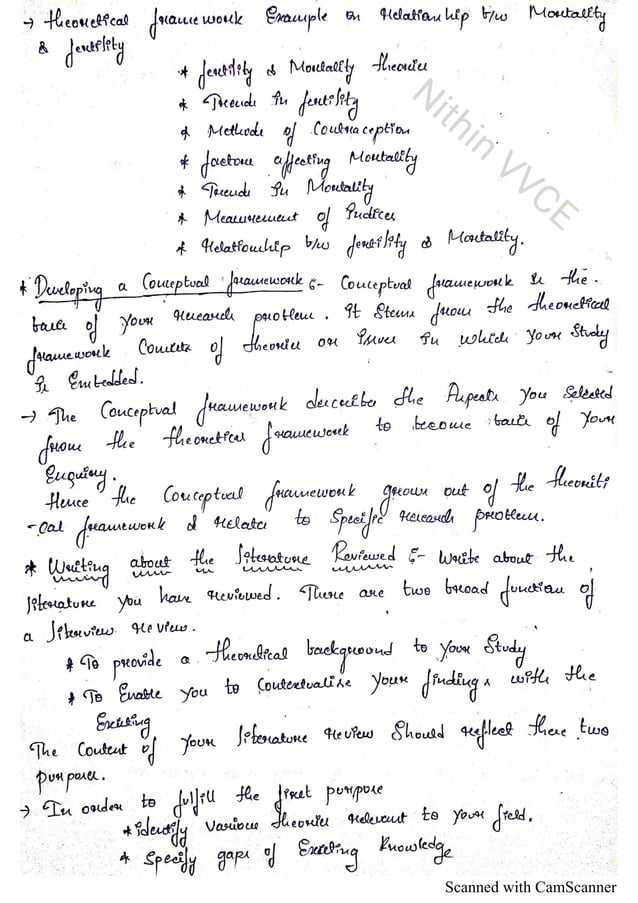 → theoretical framework Example on Relationship b/w Mortality
& fertility
* fertility & Mortality theories
* Trends in fertility
* Methods of Contraception
* factors affecting Mortality
* Trends in Mortality
* Measurement of Indices
* Relationship b/w fertility & Mortality.
* Developing a Conceptual framework :- Conceptual framework is the
basis of your research problem. It Stems from the theoretical
framework Consists of theories or Issues in which your Study
is Embedded.
→ The Conceptual framework describes the Aspects you Selected
from the theoretical framework to become basis of your
Enquiry.
Hence the Conceptual framework grows out of the theoriti
-cal framework & relates to Specific research problem.
* Writing about the literature Reviewed :- Write about the
literature you have reviewed. There are two broad function of
a literview review.
* To provide a theoretical background to your Study
* To Enable you to Contextualise your findings with the
Existing
The Content of your literature review Should reflect these two
purposes.
→ In order to fulfill the first purpose
* identify various theories relevant to your field.
* Specify gaps of Existing knowledge
Nithin VVCE
Scanned with CamScanner